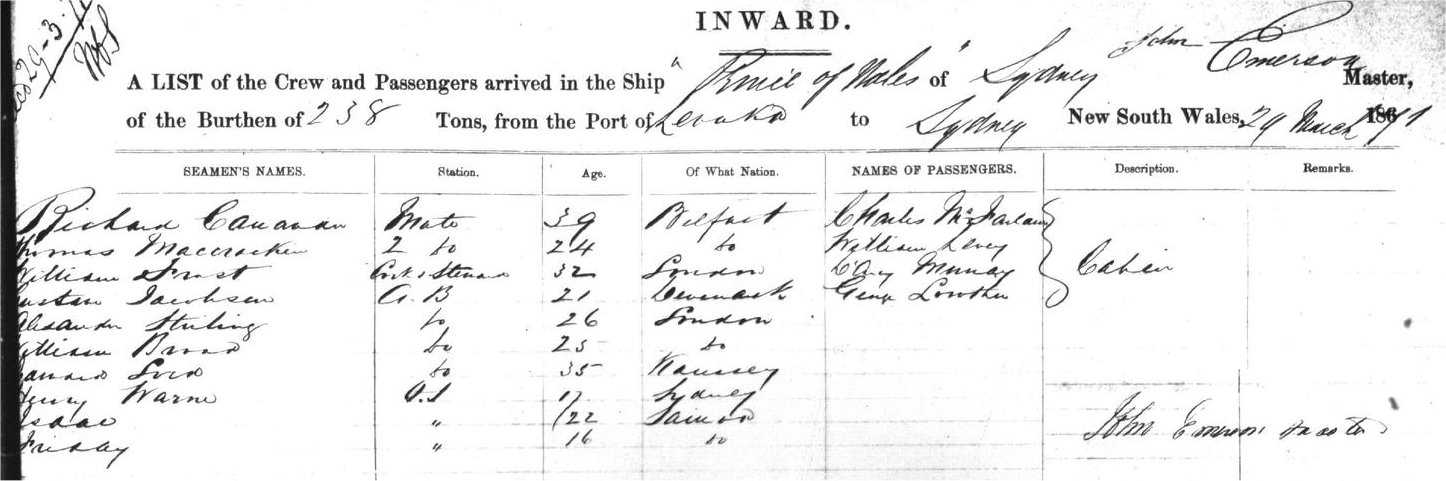 29-3-
INWARD.
A LIST of the Crew and Passengers arrived in the Ship "Prince of Wales" of Sydney John Emerson Master,
of the Burthen of 238 Tons, from the Port of Levuka to Sydney New South Wales, 29 March 1871
SEAMEN'S NAMES. Station. Age. Of What Nation. NAMES OF PASSENGERS. Description. Remarks.
Richard Canavan Mate 39 Belfast Charles McFarlane
Thomas Maccracken 2 do 24 do William Levey
William Frost Cook & Steward 32 London D'Arcy Murray Cabin
Jacobsen A.B 21 Denmark George Lowther
Alexander Stirling do 26 London
William Broad do 25 do
Lord do 35
Henry Warne O.S 17 Sydney
Isaac " 22 Samoa
Friday " 16 do
John Emerson Master